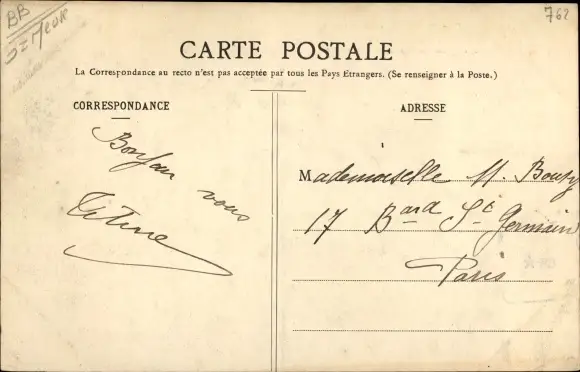 BB
762
CARTE POSTALE
La Correspondance au recto n'est pas acceptée par tous les Pays Etrangers. (Se renseigner à la Poste.)
CORRESPONDANCE
Bonjour
vous
Titine
ADRESSE
Mademoiselle M. Bouty
17 Bard St Germain
Paris